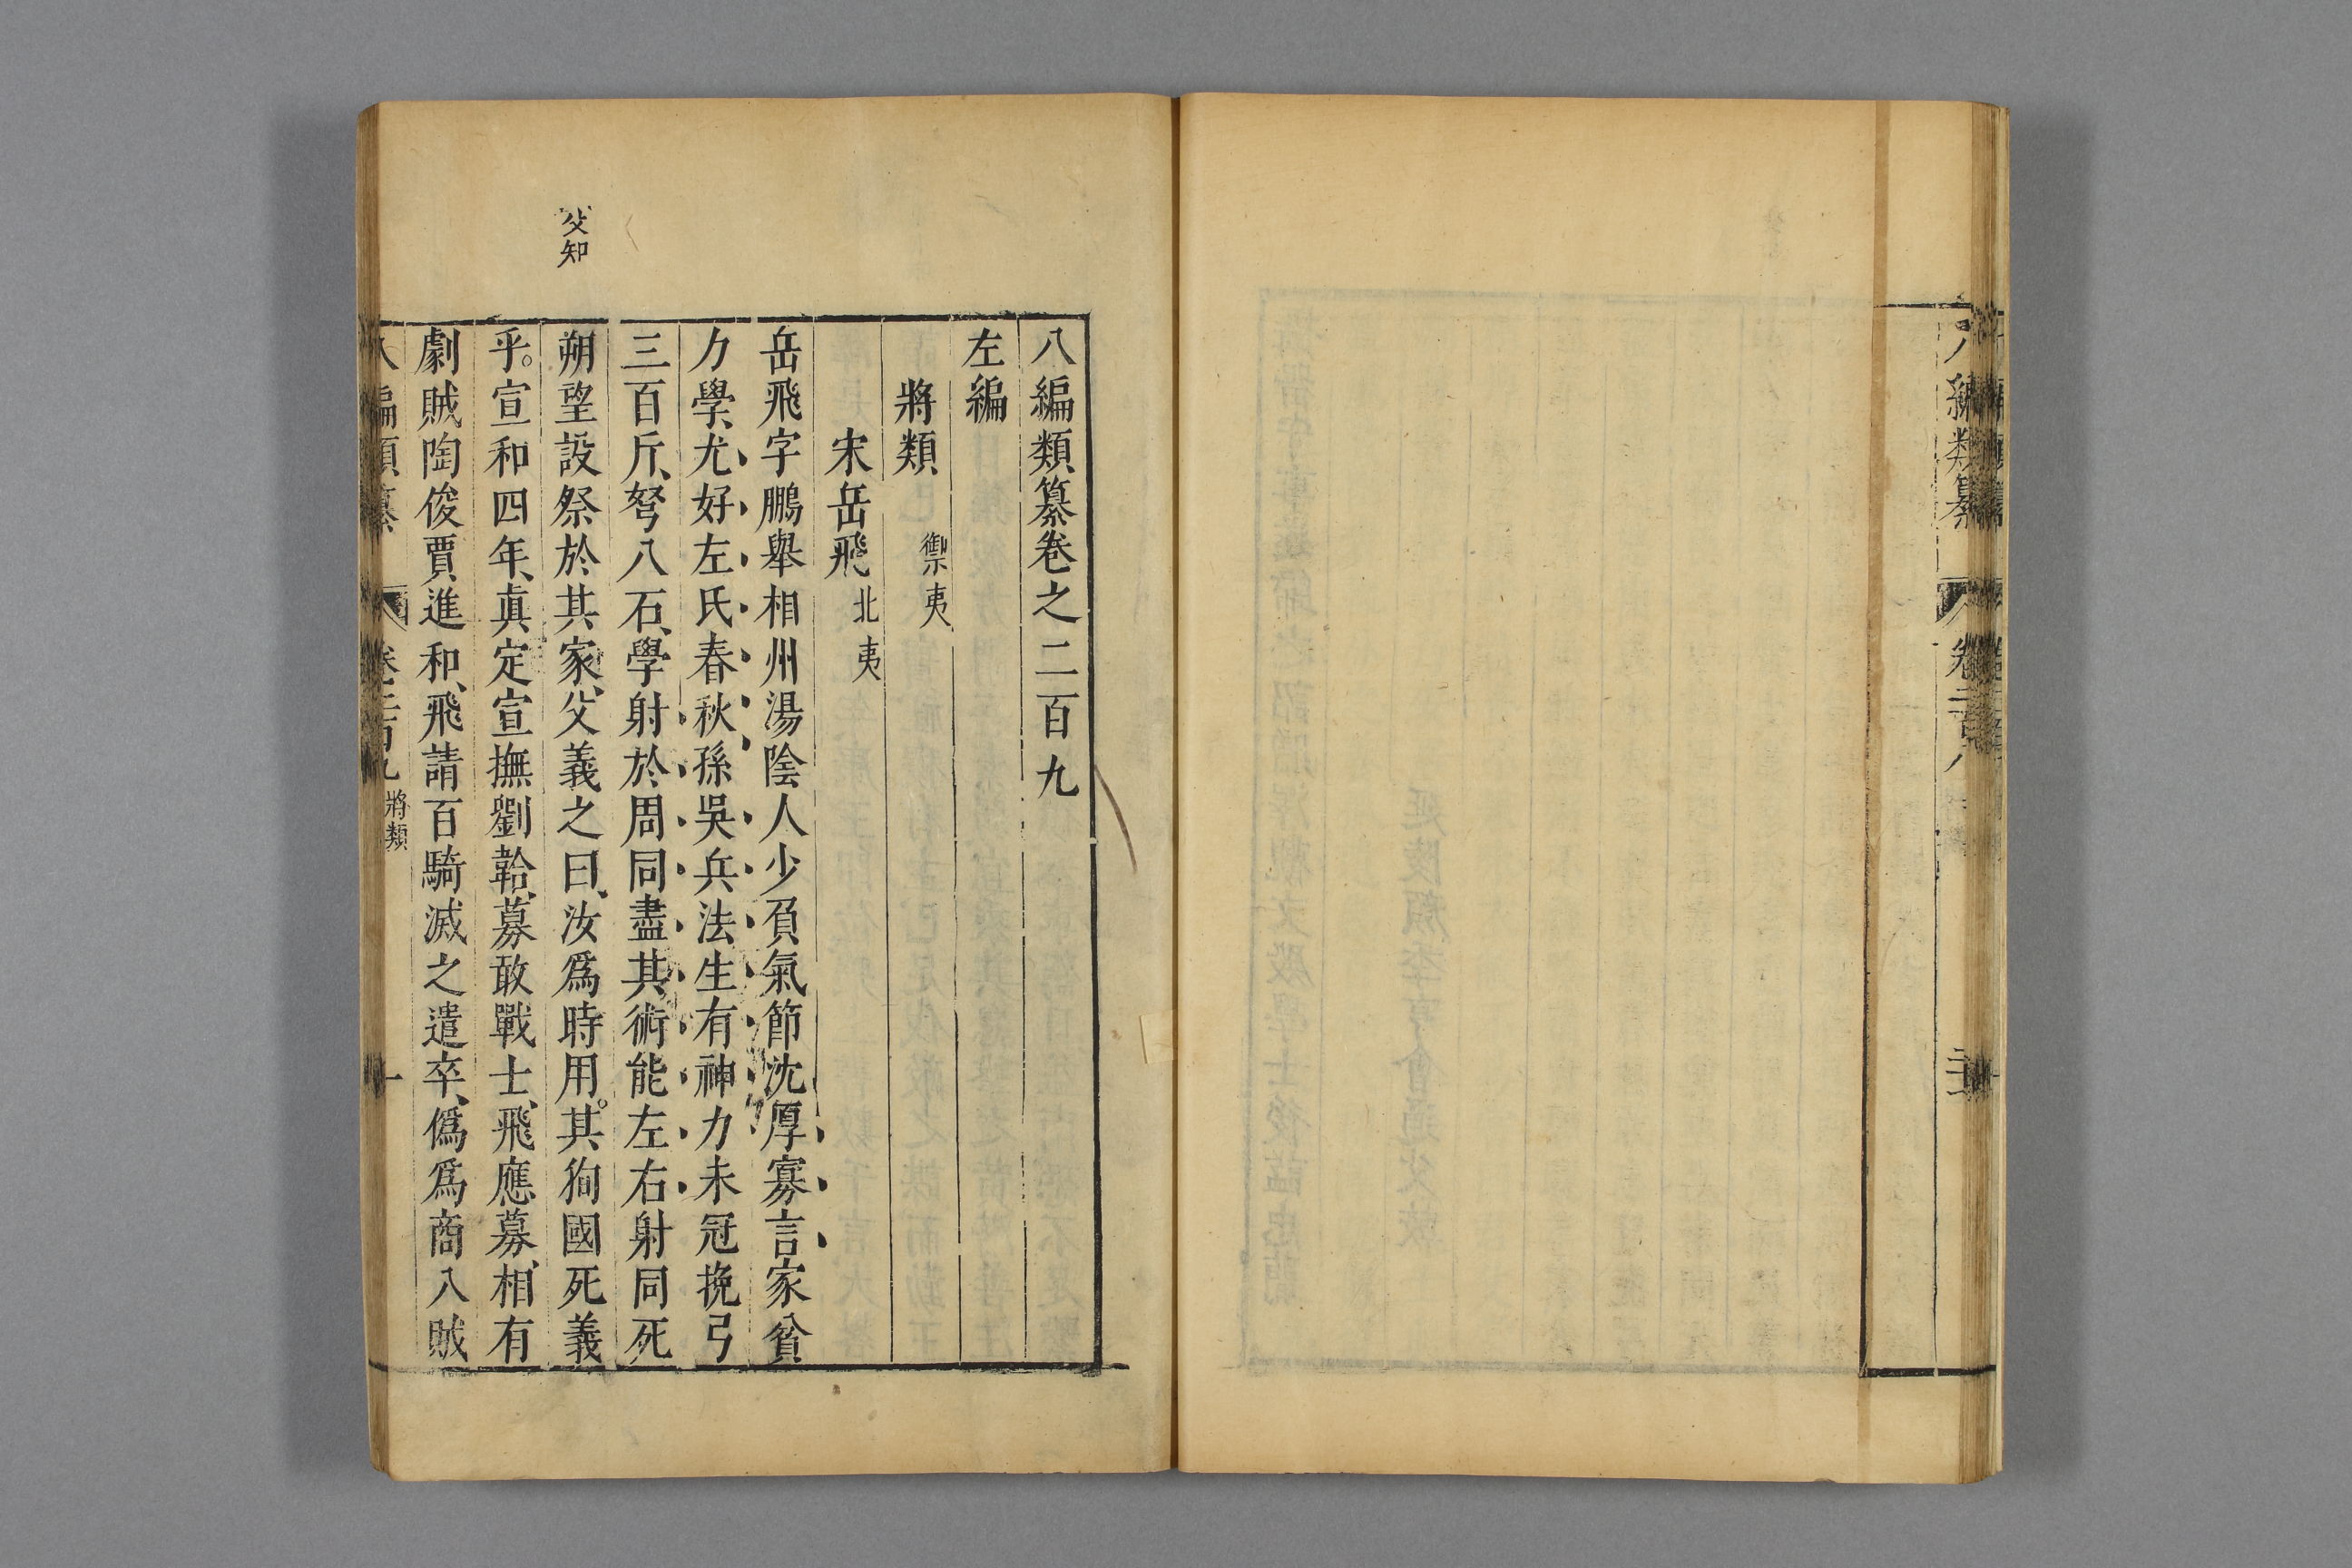 八編類纂 卷二百八
八編類纂卷之二百九
左編
將類 禦夷
宋岳飛 北夷
岳飛字鵬舉相州湯陰人少負氣節沈厚寡言家貧
力學、尤好左氏春秋孫吳兵法生有神力未冠挽弓
三百斤、弩八石、學射於周同盡其術能左右射同死
朔望設祭於其家、父義之曰、汝爲時用。其狥國死義
乎。宣和四年、真定宣撫劉韐、募敢戰士、飛應募、相有
劇賊陶俊賈進和、飛請百騎滅之遣卒、僞爲商入賊
父知
八編類纂 卷二百九 將類 一